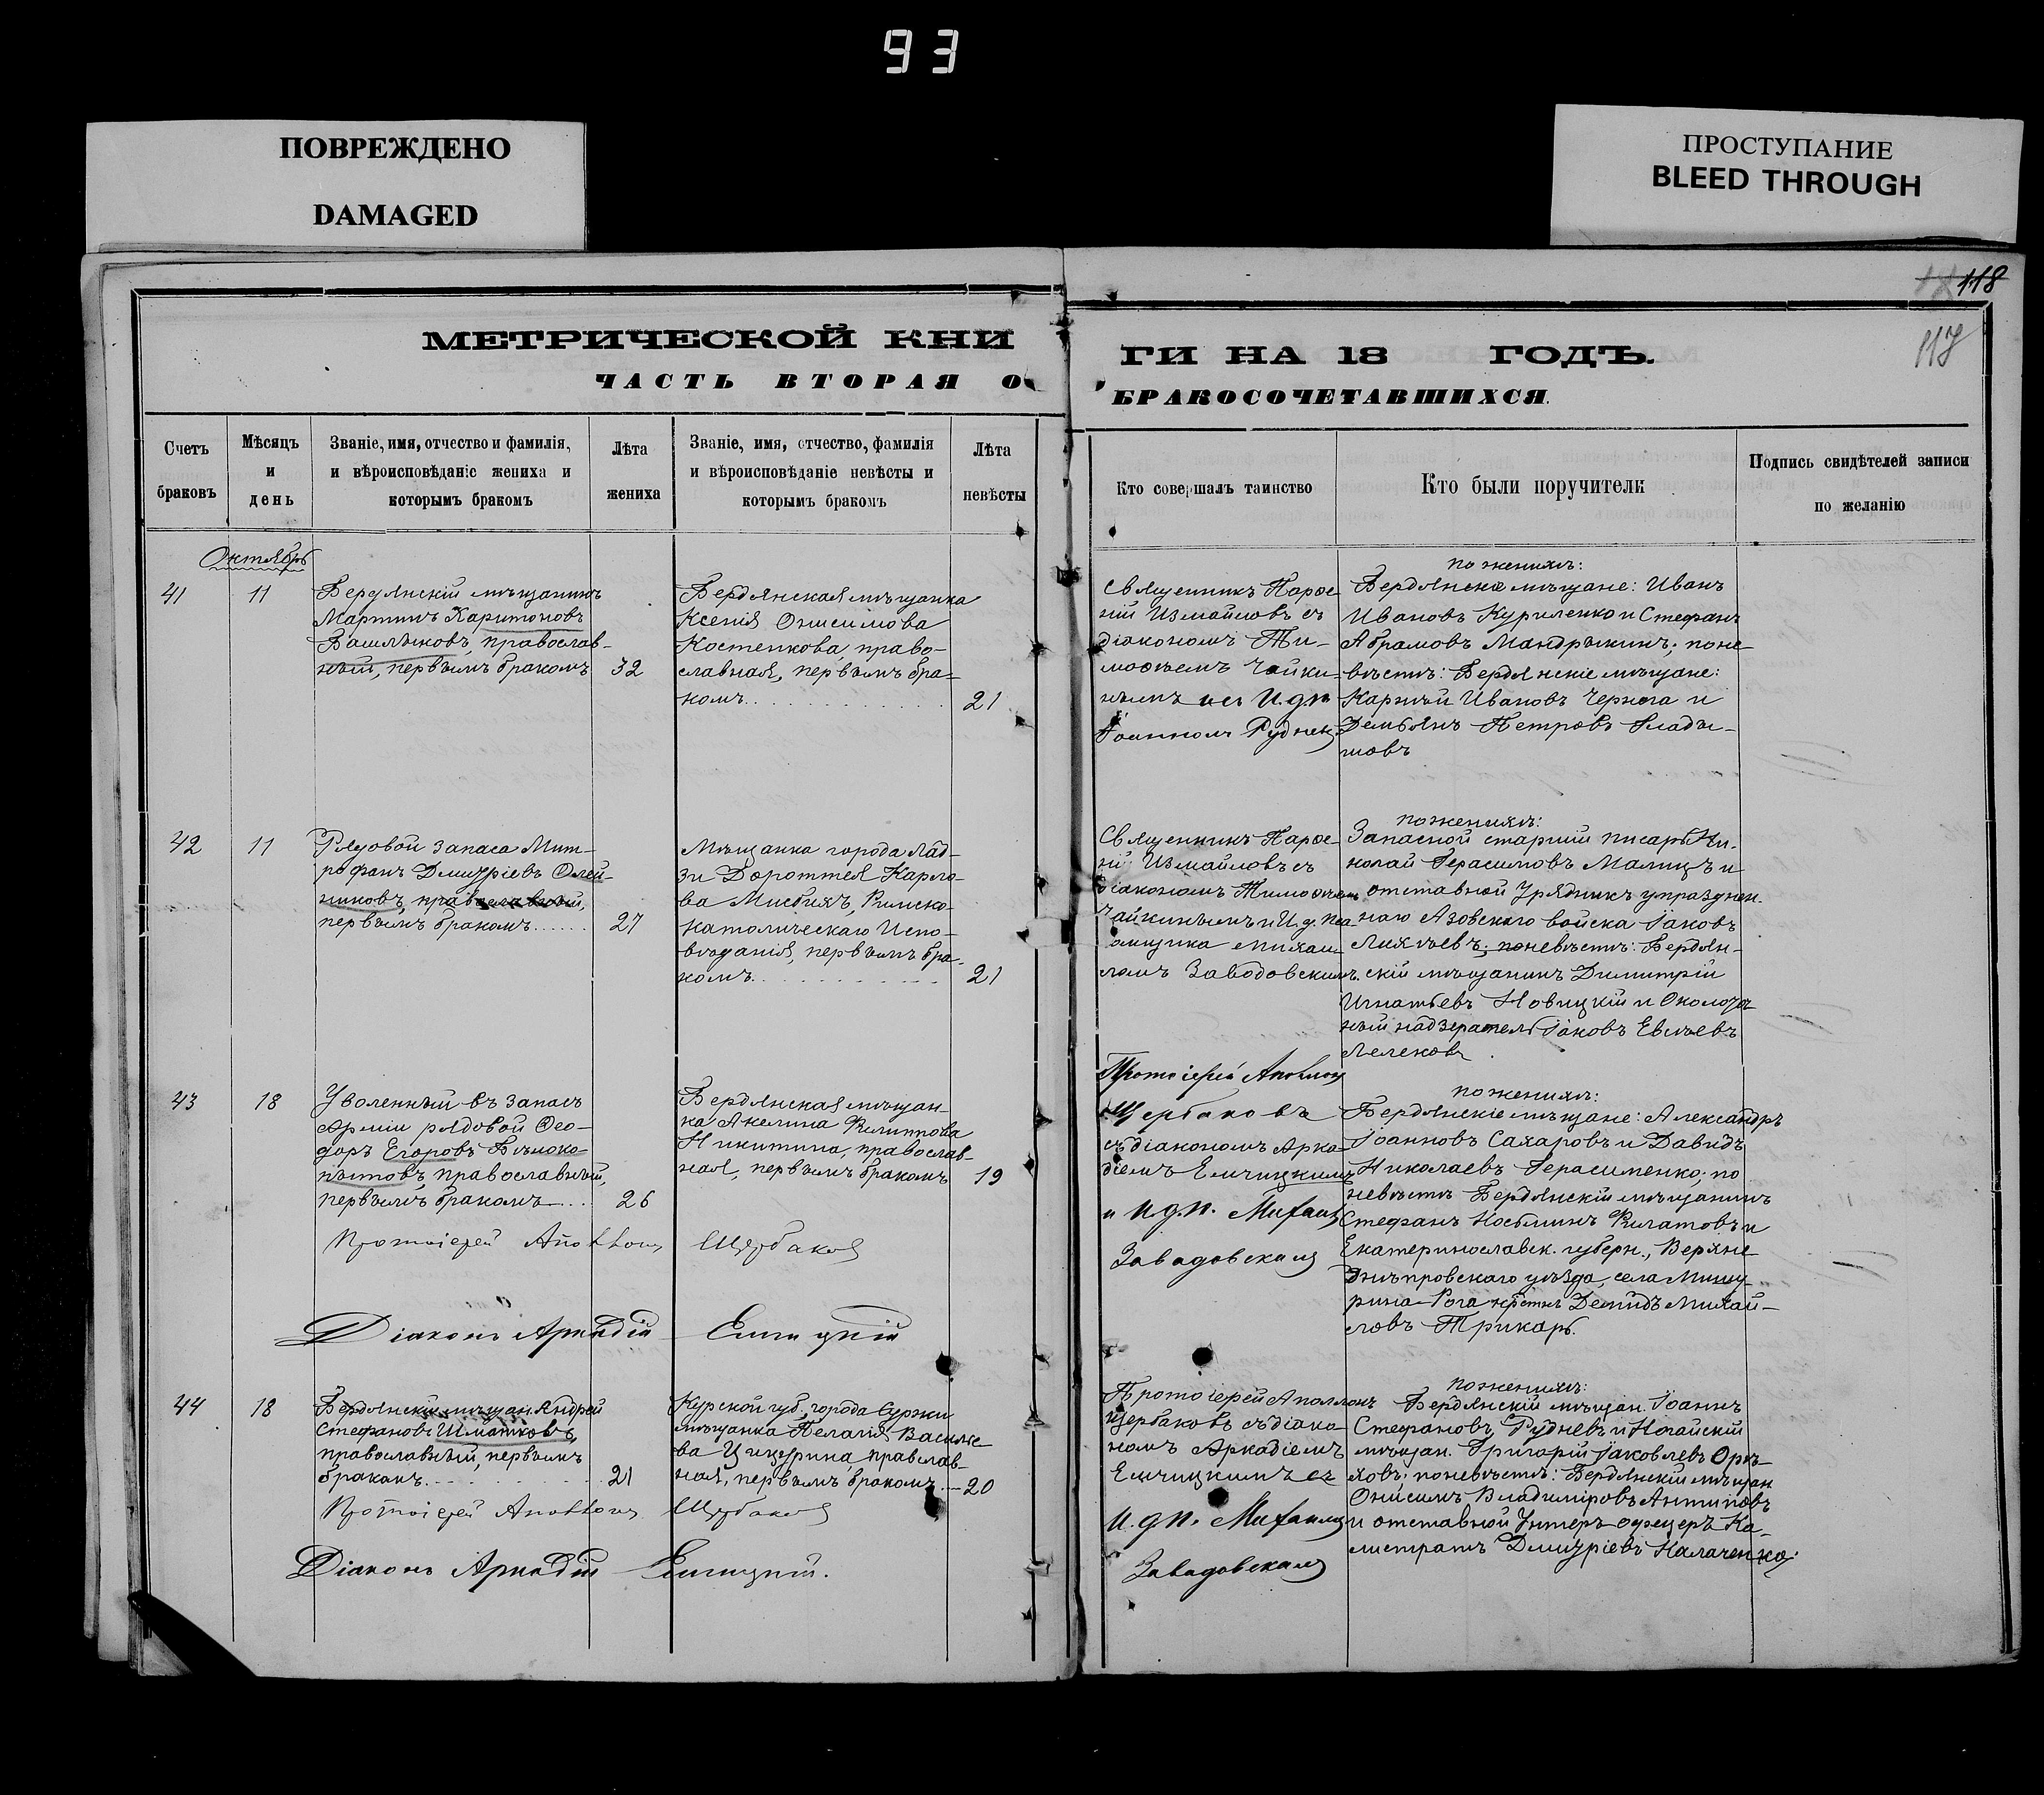 93
ПОВРЕЖДЕНО
DAMAGED
ПРОСТУПАНИЕ
BLEED THROUGH
118
117
МЕТРИЧЕСКОЙ КНИ
ЧАСТЬ ВТОРАЯ О
ГИ НА 18 ГОДЪ.
БРАКОСОЧЕТАВШИХСЯ.
Счетъ браковъ
Мѣсяцъ и день
Званіе, имя, отчество и фамилія,
и вѣроисповѣданіе жениха и
которымъ бракомъ
Лѣта жениха
Званіе, имя, отчество, фамилія
и вѣроисповѣданіе невѣсты и
которымъ бракомъ
Лѣта невѣсты
Кто совершалъ таинство
Кто были поручители
Подпись свидѣтелей записи
по желанію
Октябрь
41
11
Бердянскій мѣщанинъ
Мартинъ Харитоновъ
православ-
ный, первымъ бракомъ
32
Бердянская мѣщанка
Ксенія Онисимова
Костенкова, право-
славная, первымъ бра-
комъ
21
Священникъ Пароѳ-
ій Измайловъ съ
діакономъ Ти-
моѳеемъ Чайки-
нымъ и съ И.д.п.
Іоанномъ Руднев.
по женихѣ:
Бердянскіе мѣщане: Иванъ
Ивановъ Куриленко и Стефанъ
Абрамовъ Мандрыкинъ; по не-
вѣстѣ: Бердянскіе мѣщане:
Карпъ Ивановъ Чернога и
Демьянъ Петровъ Глады-
шовъ
42
11
Рядовой запаса Мит-
рофанъ Димитріевъ Олей-
никовъ, православный,
первымъ бракомъ
27
Мѣщанка города Лод-
зи Доротея Карло-
ва Римско-
католическаго Испо-
вѣданія, первымъ бра-
комъ
21
Священникъ Пароѳ-
ій Измайловъ съ
діакономъ Тимоѳеем
Чайкинымъ и И.д. пса-
ломщика Михаи-
ломъ Заводовскимъ.
по женихѣ:
Запасной старшій писарь Ни-
колай Герасимовъ Малицъ и
отставной Урядникъ упразднен-
наго Азовскаго войска Іаковъ
по невѣстѣ: Бердян-
скій мѣщанинъ Димитрій
Игнатьевъ Новицкій и Околоточ-
ный надзиратель Іаковъ Евсѣевъ
Лелековъ
43
18
Уволенный въ запасъ
Арміи рядовой Ѳео-
доръ Егоровъ Бѣлоко-
пытовъ, православный,
первымъ бракомъ
26
Бердянская мѣщан-
ка Акилина Филиппова
Никитина, православ-
ная, первымъ бракомъ
19
Протоіерей Аполлонъ
Щербаковъ
съ діакономъ Арка-
діемъ Емчицкимъ
и И.д.п. Михаил
Завадовскимъ
по женихѣ:
Бердянскіе мѣщане: Александръ
Іоанновъ Сахаровъ и Давидъ
Николаевъ Герасименко; по
невѣстѣ Бердянскій мѣщанинъ
Стефанъ Косьминъ Филатовъ и
Екатеринославск. губерн., Верхне
днѣпровскаго уѣзда, села Мишу-
рина-Рога крестьн Демидъ Михай-
ловъ Трикарь.
Протоіерей Аполлонъ Щербаковъ
Діаконъ Аркадій Емчицкій
44
18
Бердянскій мѣщан. Андрей
Стефановъ Шматковъ,
православный, первымъ
бракомъ
21
Курской губ., города Суджи
мѣщанка Пелагія Василье-
ва Цицурина, православ-
ная, первымъ бракомъ
20
Протоіерей Аполлонъ
Щербаковъ съ діако-
номъ Аркадіемъ
Емчицкимъ съ
И.д.п. Михаиломъ
Завадовскимъ
по женихѣ:
Бердянскій мѣщан. Іоаннъ
Стефановъ Рудневъ и Ногайскій
мѣщан. Григорій Іаковлевъ Орѣ-
ховъ; по невѣстѣ: Бердянскій мѣщан
Онисимъ Владиміровъ Антиповъ
и отставной Унтеръ-офицеръ Ка-
листратъ Димитріевъ Калаченко.
Протоіерей Аполлонъ Щербаковъ
Діаконъ Аркадій Емчицкій.